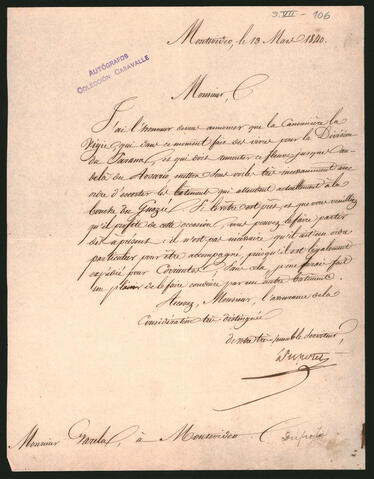 9-VII-106
AUTÓGRAFOS
COLECCIÓN CARAVALLE
Montevideo, le 13 Mars 1840.
Monsieur,
J'ai l'honneur de vous annoncer que la Canonnière la
Vigie, qui dans ce moment fait des vivres pour la Division
du Parana, et qui doit remonter ce fleuve jusques au
delà du Rosario, mettra sous voile très incessamment avec
ordre d'escorter les bâtiments qui attendent actuellement à la
bouche du Guazú. Si votre est prêt et que vous vouliez
qu'il profite de cette occasion, vous pouvez le faire partir
dès à présent: il n'est pas nécessaire qu'il ait un ordre
particulier pour être accompagné, puisqu'il est légalement
expédié pour Corrientes. Sans cela, je me serais fait
un plaisir de le faire conduire par un autre bâtiment.
Recevez, Monsieur, l'assurance de la
Considération très distinguée
de votre très humble serviteur,
Dupotet
Monsieur Varela, à Montevideo
Dupotet